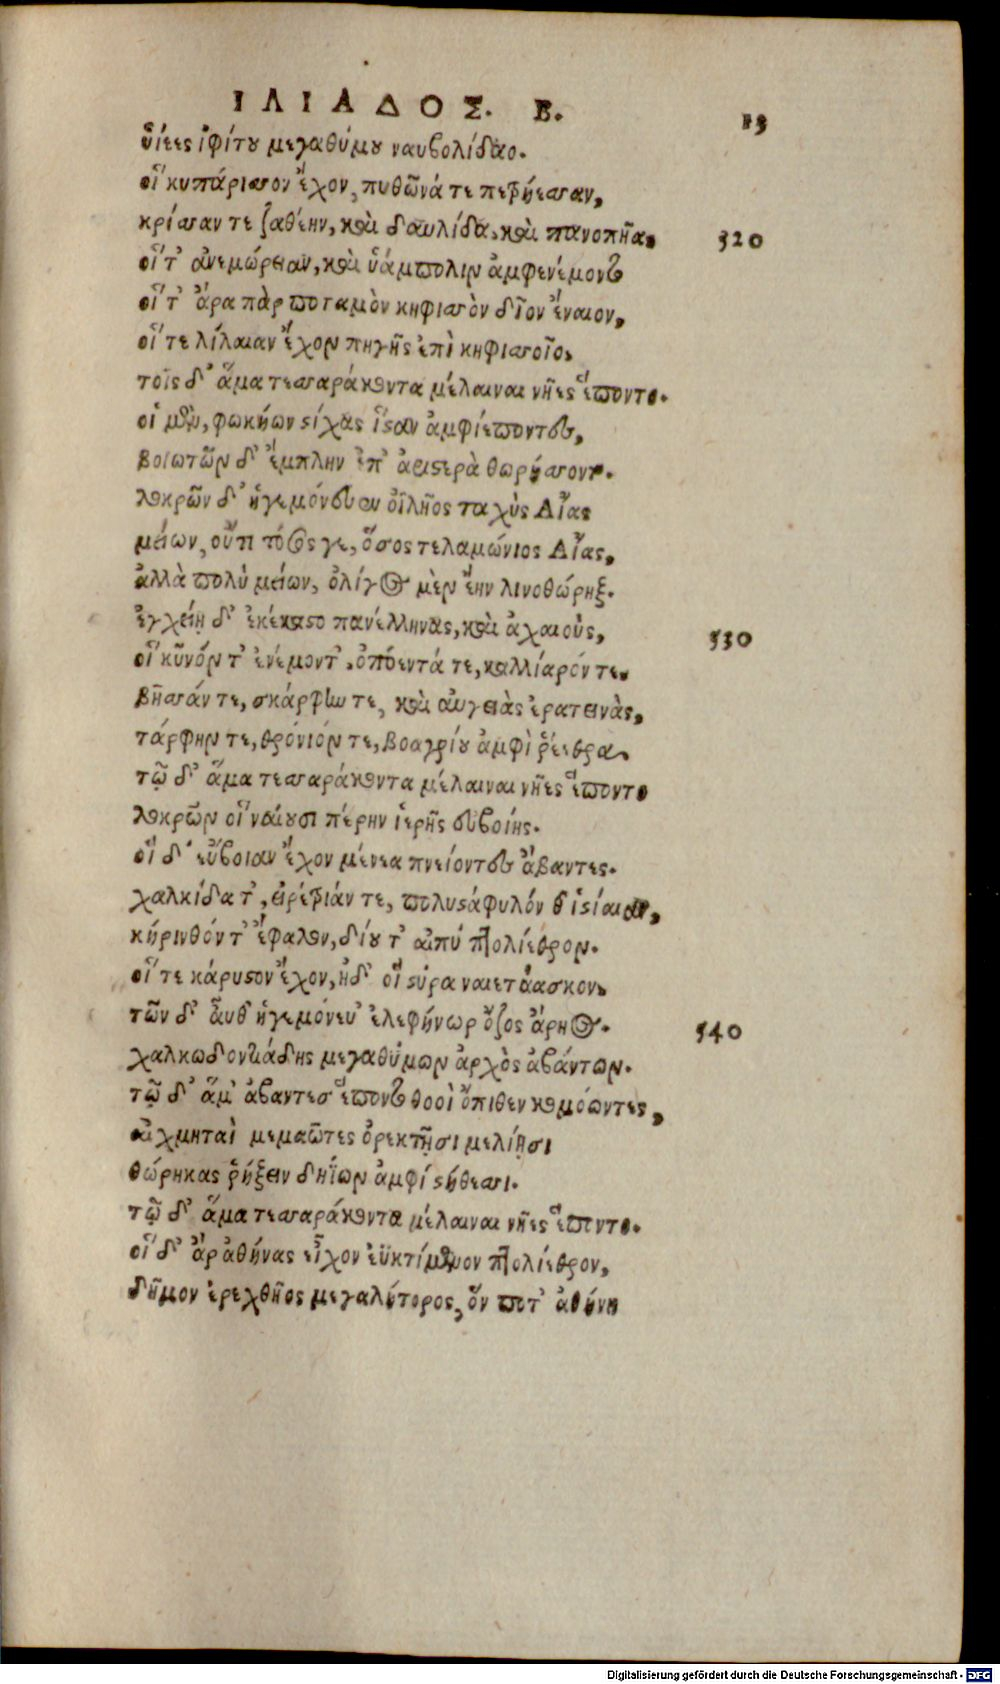 ΙΛΙΑΔΟΣ. Β.
23
ὑίεες ἰφίτου μεγαθύμου ναυβολίδαο.
οἳ κυπάρισσον ἔχον, πυθῶνά τε πετρήεσσαν,
κρίσσαν τε ζαθέην, καὶ δαυλίδα, καὶ πανοπῆα,
520
οἵ τ' ἀνεμώρειαν, καὶ ὑάμπολιν ἀμφενέμοντο
οἵ τ' ἄρα πὰρ ποταμὸν κηφισσὸν δῖον ἔναιον,
οἵ τε λίλαιαν ἔχον πηγῆς ἐπὶ κηφισσοῖο,
τοῖς δ' ἅμα τεσσαράκοντα μέλαιναι νῆες ἕποντο.
οἱ μὲν, φωκήων στίχας ἵσαν ἀμφιέποντες,
βοιωτῶν δ' ἔμπλην ἐπ' ἀριστερὰ θωρήσσοντο.
λοκρῶν δ' ἡγεμόνευεν ὀϊλῆος ταχὺς Αἴας
μείων, οὔτι τόσος γε, ὅσος τελαμώνιος Αἴας,
ἀλλὰ πολὺ μείων, ὀλίγος μὲν ἔην λινοθώρηξ.
ἐγχείῃ δ' ἐκέκαστο πανέλληνας, καὶ ἀχαιοὺς,
530
οἳ κῦνόν τ' ἐνέμοντ', ὀπόεντά τε, καλλίαρόν τε,
βῆσσάν τε, σκάρφην τε, καὶ αὐγειὰς ἐρατεινὰς,
τάρφην τε, θρόνιόν τε, βοαγρίου ἀμφὶ ῥέεθρα
τῷ δ' ἅμα τεσσαράκοντα μέλαιναι νῆες ἕποντο
λοκρῶν οἳ ναίουσι πέρην ἱερῆς εὐβοίης.
οἳ δ' εὔβοιαν ἔχον μένεα πνείοντες ἄβαντες.
χαλκίδα τ', εἰρέτριάν τε, πολυστάφυλόν θ' ἱστίαιαν,
κήρινθόν τ' ἔφαλον, δίου τ' αἰπύ πτολίεθρον.
οἵ τε κάρυστον ἔχον, ἠδ' οἳ στύρα ναιετάασκον,
τῶν δ' αὖθ' ἡγεμόνευ' ἐλεφήνωρ ὄζος ἄρηος.
540
χαλκωδοντιάδης μεγαθύμων ἀρχὸς ἀβάντων.
τῷ δ' ἅμ' ἄβαντεσ ἕποντο θοοὶ ὄπιθεν κομόωντες,
αἰχμηταὶ μεμαῶτες ὀρεκτῇσι μελίῃσι
θώρηκας ῥήξειν δηΐων ἀμφί στήθεσσι.
τῷ δ' ἅμα τεσσαράκοντα μέλαιναι νῆες ἕποντο.
οἳ δ' ἄρ' ἀθήνας εἶχον ἐϋκτίμενον πτολίεθρον,
δῆμον ἐρεχθῆος μεγαλήτορος, ὅν ποτ' ἀθήνη
Digitalisierung gefördert durch die Deutsche Forschungsgemeinschaft - DFG